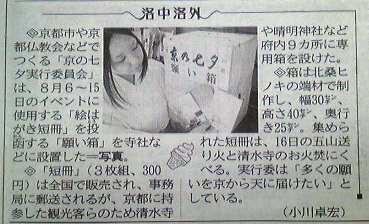 洛中洛外
◎京都市や京
都仏教会などで
つくる「京の七
夕実行委員会」
は、8月6〜15
日のイベントに
使用する「絵は
がき短冊」を投
函する「願い箱」を寺社な
どに設置した=写真。
◎「短冊」（3枚組、300
円）は全国で販売され、事務
局に郵送されるが、京都に持
参した観光客らのため清水寺
京の七夕
願い箱
や晴明神社など
府内9カ所に専
用箱を設けた。
◎箱は北桑ヒ
ノキの端材で制
作し、幅30㌢、
高さ40㌢、奥行
き25㌢。集めら
れた短冊は、16日の五山送
り火と清水寺のお火焚にく
べる。実行委は「多くの願
いを京から天に届けたい」と
している。
（小川卓宏）